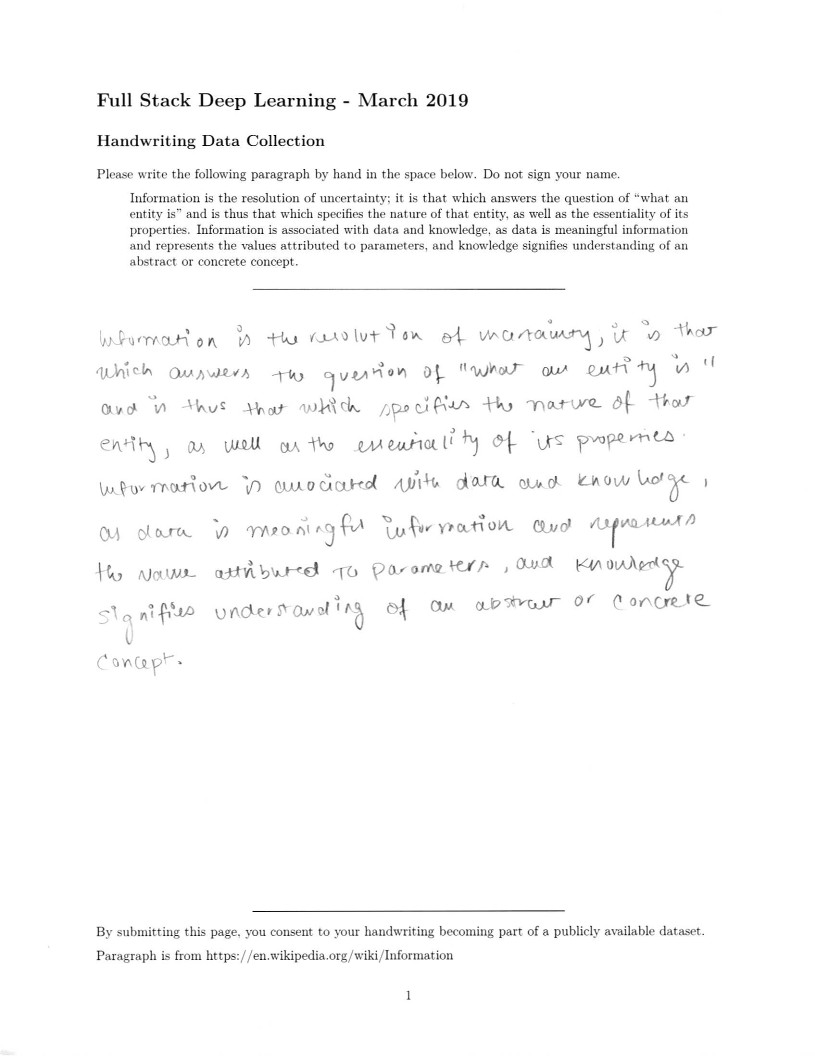 Full Stack Deep Learning - March 2019
Handwriting Data Collection
Please write the following paragraph by hand in the space below. Do not sign your name.
Information is the resolution of uncertainty; it is that which answers the question of “what an
entity is” and is thus that which specifies the nature of that entity, as well as the essentiality of its
properties. Information is associated with data and knowledge, as data is meaningful information
and represents the values attributed to parameters, and knowledge signifies understanding of an
abstract or concrete concept.
Information is the resolution of uncertainty, it is that
which answers the question of "what an entity is"
and is thus that which specifies the nature of that
entity, as well as the essentiality of its properties.
Information is associated with data and knowledge,
as data is meaningful information and represents
the attributed to parameters, and knowledge
signifies understanding of an abstract or concrete
concept.
By submitting this page, you consent to your handwriting becoming part of a publicly available dataset.
Paragraph is from https://en.wikipedia.org/wiki/Information
1